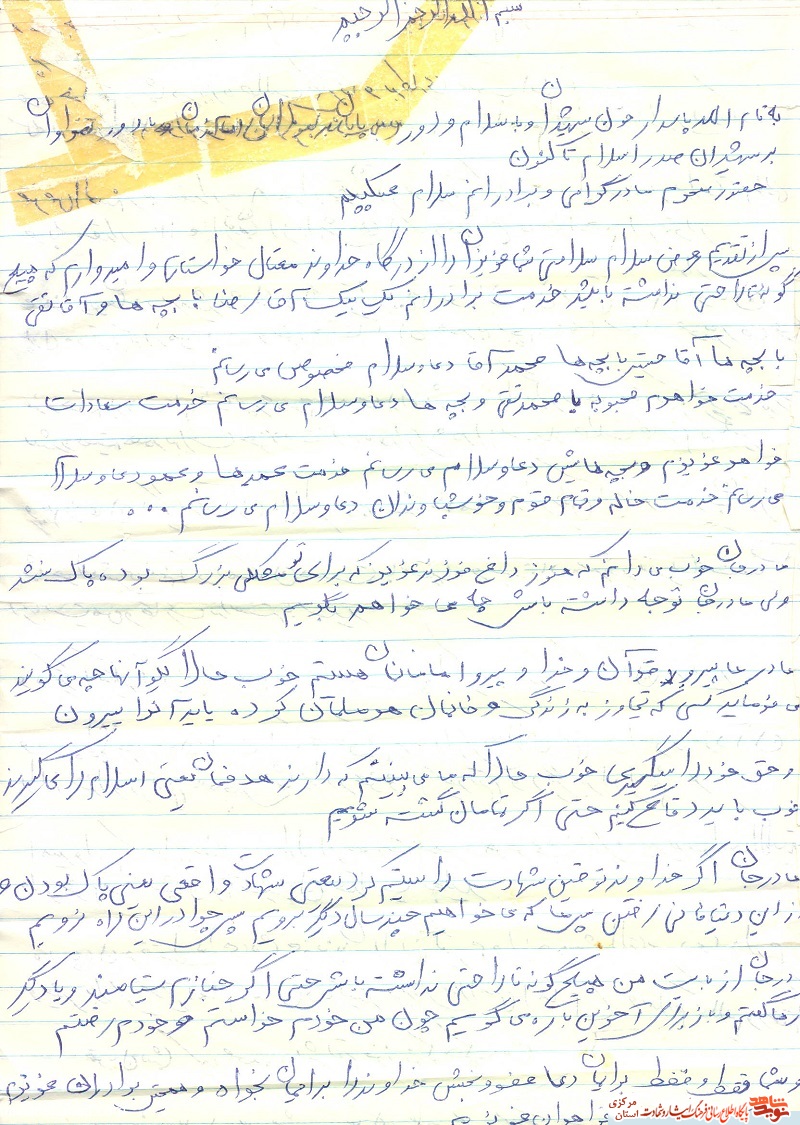 بسم الله الرحمن الرحیم
به نام الله پاسدار خون شهیدان و با سلام و درود
بر شهیدان صدر اسلام تا کنون
حضور محترم مادر گرامی و برادرانم سلام عیلکم
پس از تقدیم عرض سلام سلامتی شما عزیزان را از درگاه خداوند متعال خواستارم و امیدوارم که هیچ
گونه ناراحتی نداشته باشید خدمت برادرانم یک یک آقا رضا با بچه ها و آقا تقی
با بچه ها آقا حسین با بچه ها محمد آقا دعا و سلام مخصوص می رسانم
خدمت خواهرم محبوبه با محمد تقی و بچه ها دعا و سلام می رسانم خدمت سعادات
خواهر عزیزم و بچه هایش دعا و سلام می رسانم خدمت عمه ها و عمو دعا و سلام
می رسانم خدمت خاله و تمام قوم و خویشاوندان دعا و سلام می رسانم ...
مادرجان خوب می دانم که هنوز داغ فرزند عزیز که برای تو مشکلی بزرگ بوده پاک نشد
ولی مادرجان توجه داشته باش چه می خواهم بگویم
مادر ما پیرو قرآن و خدا و پیرو امامان هستیم خوب حالا بگو آنها چه می گویند
می فرماید کسی که تجاوز به زندگی و خانمان هر مسلمان کرده باید آنرا بیرون
و حق خود را بگیری خوب حالا که ما می بینیم که دارند هدفمان یعنی اسلام را می گیرند
خوب باید دفاع کنیم حتی اگر تمامان کشته شویم
مادرجان اگر خداوند توفیق شهادت را نصیبم کرد یعنی شهادت واقعی یعنی پاک بودن و
از این دنیا فانی رفتن پس ما که می خواهیم چند سال دیگر برویم پس چرا در این راه نرویم
مادرجان از بابت من هیچ گونه ناراحتی نداشته باش حتی اگر جنازم نیامد و یا دیگر
گفتم و باز برای آخرین باره می گویم چون من خودم خواستم و خودم رفتم
و شما فقط و فقط برایمان دعا عفو و بخش خداوند را برایمان بخواه و همین برادران عزیز
خواهران عزیزم
نوید شاهد
پایگاه اطلاع رسانی فرهنگ ایثار و شهادت
استان مرکزی